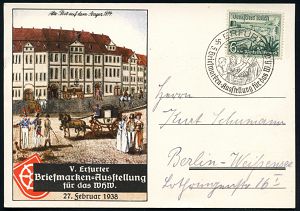 Alte Post auf dem Anger 1894
V. Erfurter
Briefmarken-Ausstellung
für das WHW.
27. Februar 1938
Deutsches Reich
6
ERFURT
5. Erfurter Briefmarken-Ausstellung für das W.H.W.
Herrn
Kurt Schumann
Berlin-Weißensee